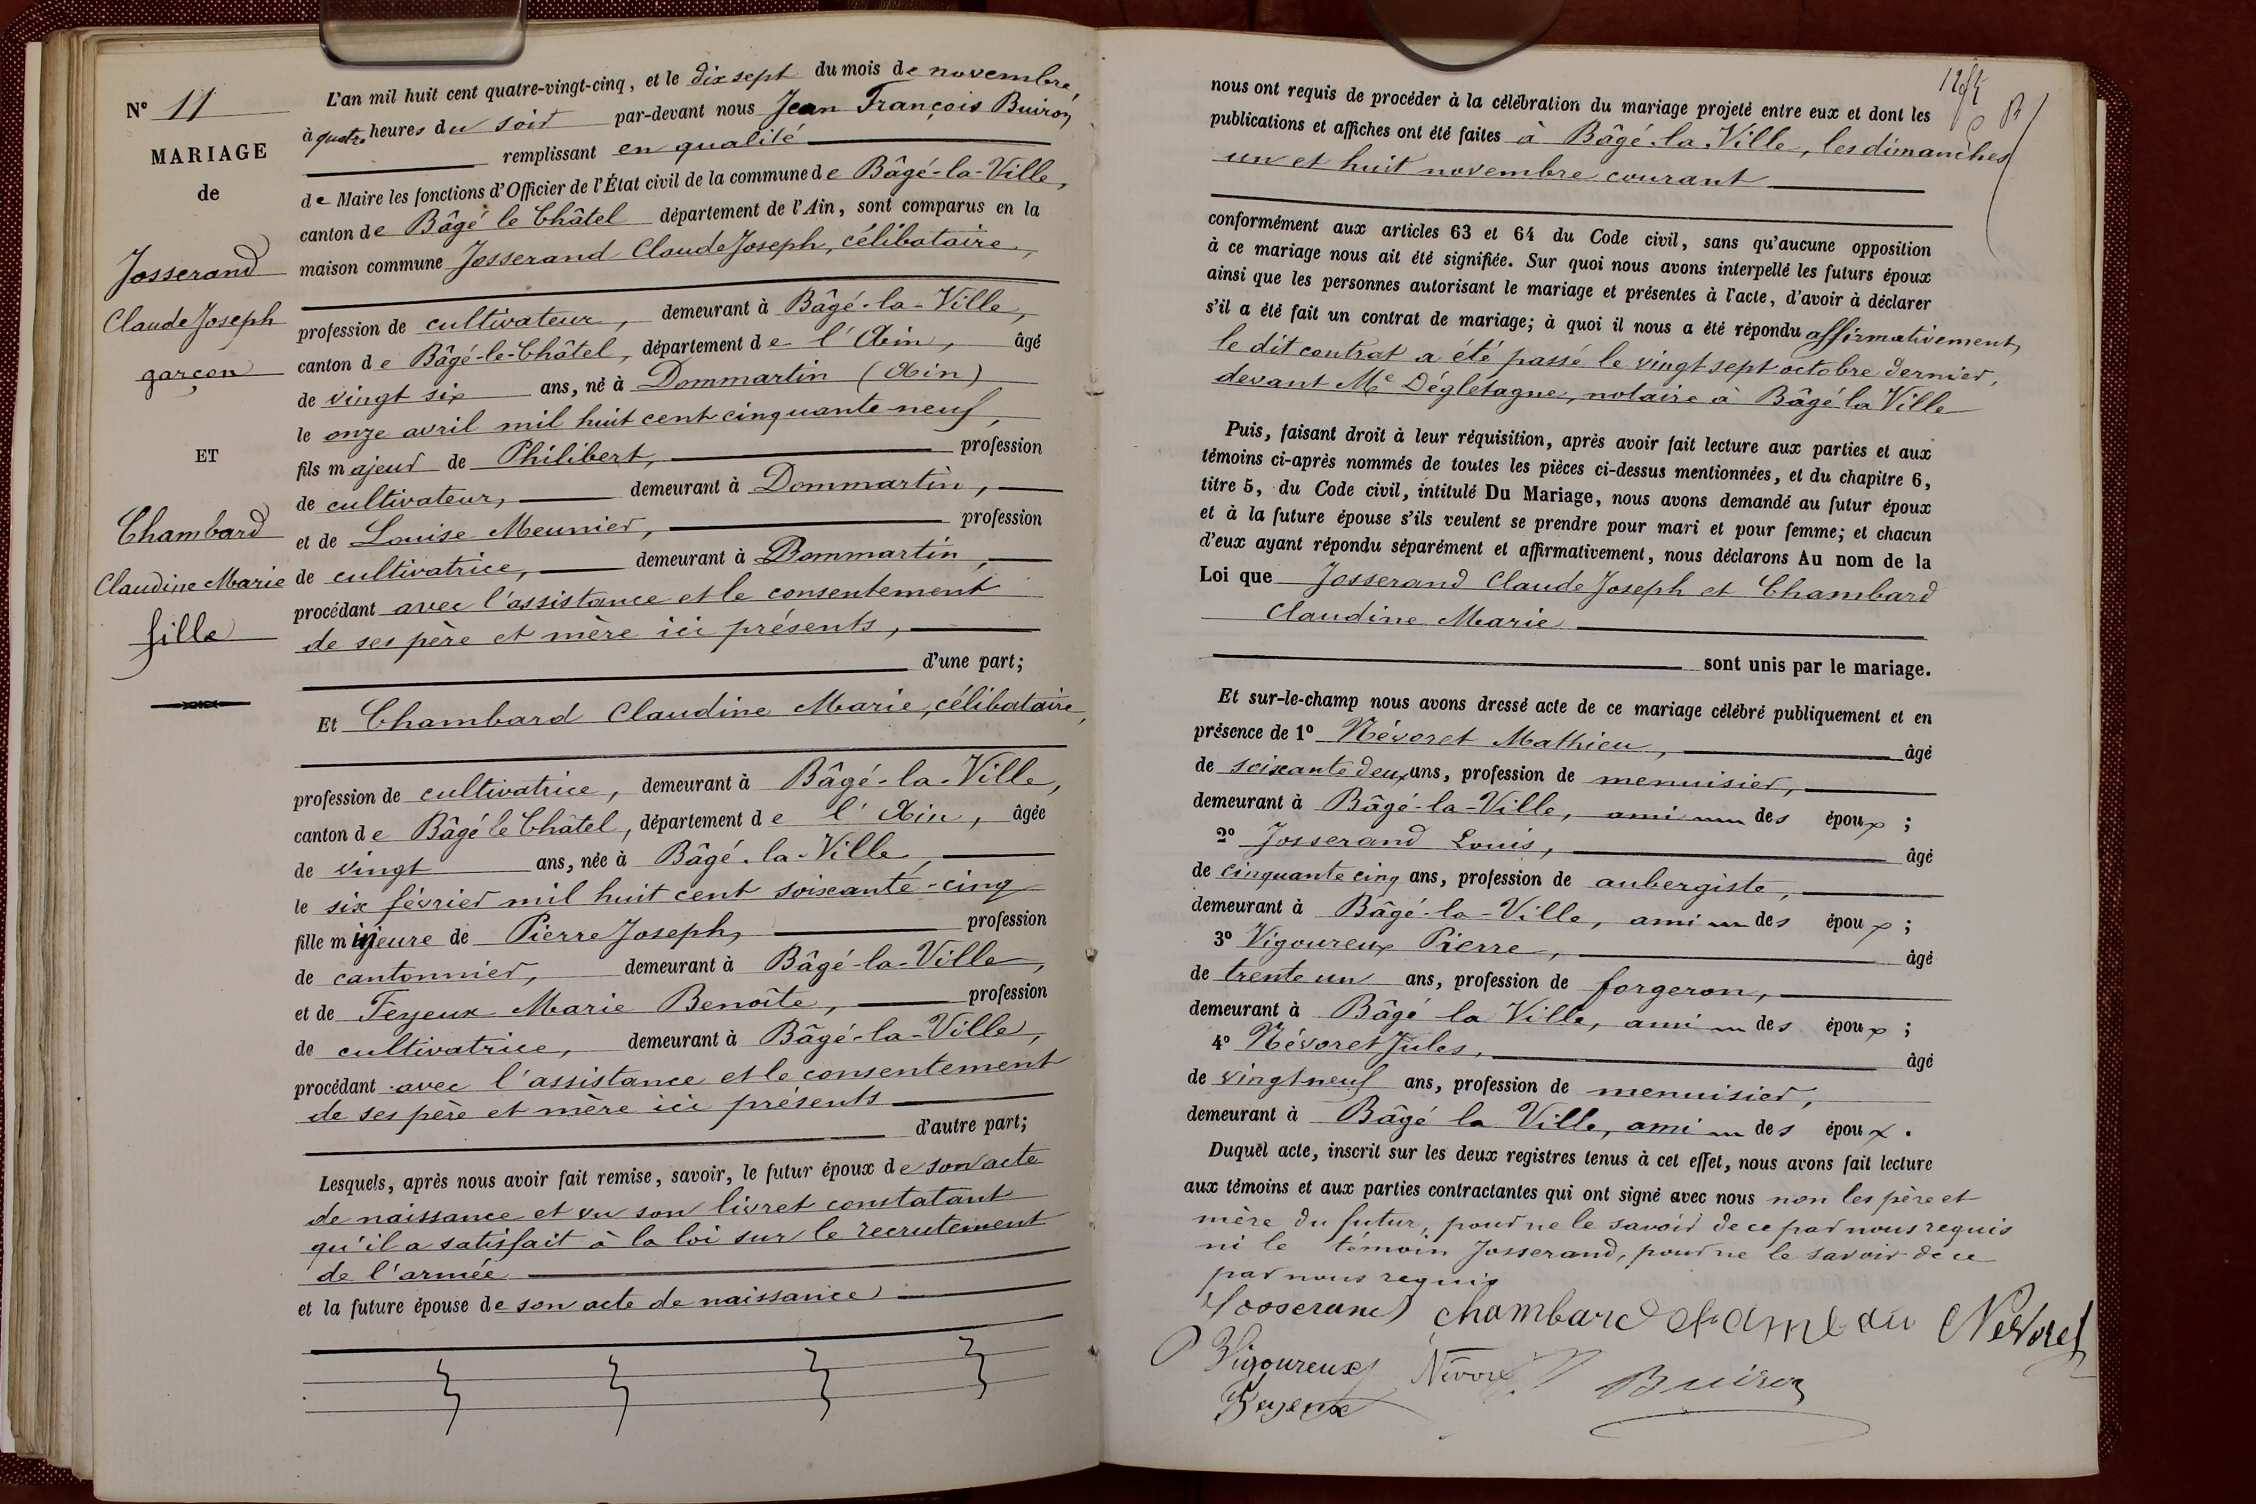 N° 11
MARIAGE
de
Josserand
Claude Joseph
garçon
ET
Chambard
Claudine Marie
fille
L'an mil huit cent quatre-vingt-cinq, et le dix sept du mois de novembre,
à quatre heures du soir par-devant nous Jean François Buiron
remplissant en qualité
de Maire les fonctions d'Officier de l'État civil de la commune de Bâgé-la-Ville,
canton de Bâgé le Châtel département de l'Ain, sont comparus en la
maison commune Josserand Claude Joseph, célibataire,
profession de cultivateur, demeurant à Bâgé-la-Ville,
canton de Bâgé-le-Châtel, département de l'Ain, âgé
de vingt six ans, né à Dommartin (Ain)
le onze avril mil huit cent cinquante-neuf,
fils majeur de Philibert, profession
de cultivateur, demeurant à Dommartin,
et de Louise Meunier, profession
de cultivatrice, demeurant à Dommartin,
procédant avec l'assistance et le consentement
de ses père et mère ici présents,
d'une part;
Et Chambard Claudine Marie, célibataire,
profession de cultivatrice, demeurant à Bâgé-la-Ville,
canton de Bâgé le Châtel, département de l'Ain, âgée
de vingt ans, née à Bâgé-la-Ville,
le six février mil huit cent soixante-cinq
fille mineure de Pierre Joseph, profession
de cantonnier, demeurant à Bâgé-la-Ville,
et de Feyeux Marie Benoîte, profession
de cultivatrice, demeurant à Bâgé-la-Ville,
procédant avec l'assistance et le consentement
de ses père et mère ici présents
d'autre part;
Lesquels, après nous avoir fait remise, savoir, le futur époux de son acte
de naissance et vu son livret constatant
qu'il a satisfait à la loi sur le recrutement
de l'armée
et la future épouse de son acte de naissance
nous ont requis de procéder à la célébration du mariage projeté entre eux et dont les
publications et affiches ont été faites à Bâgé-la-Ville, les dimanches
un et huit novembre courant
conformément aux articles 63 et 64 du Code civil, sans qu'aucune opposition
à ce mariage nous ait été signifiée. Sur quoi nous avons interpellé les futurs époux
ainsi que les personnes autorisant le mariage et présentes à l'acte, d'avoir à déclarer
s'il a été fait un contrat de mariage; à quoi il nous a été répondu affirmativement,
le dit contrat a été passé le vingt sept octobre dernier,
devant Me Dégletagne, notaire à Bâgé la Ville
Puis, faisant droit à leur réquisition, après avoir fait lecture aux parties et aux
témoins ci-après nommés de toutes les pièces ci-dessus mentionnées, et du chapitre 6,
titre 5, du Code civil, intitulé Du Mariage, nous avons demandé au futur époux
et à la future épouse s'ils veulent se prendre pour mari et pour femme; et chacun
d'eux ayant répondu séparément et affirmativement, nous déclarons Au nom de la
Loi que Josserand Claude Joseph et Chambard
Claudine Marie
sont unis par le mariage.
Et sur-le-champ nous avons dressé acte de ce mariage célébré publiquement et en
présence de 1° Névoret Mathieu, âgé
de soixante deux ans, profession de menuisier,
demeurant à Bâgé-la-Ville, ami des époux;
2° Josserand Louis, âgé
de cinquante cinq ans, profession de aubergiste,
demeurant à Bâgé-la-Ville, ami des époux;
3° Vigoureux Pierre, âgé
de trente un ans, profession de forgeron,
demeurant à Bâgé la Ville, ami des époux;
4° Névoret Jules, âgé
de vingt neuf ans, profession de menuisier,
demeurant à Bâgé la Ville, ami des époux.
Duquel acte, inscrit sur les deux registres tenus à cet effet, nous avons fait lecture
aux témoins et aux parties contractantes qui ont signé avec nous non les père et
mère du futur, pour ne le savoir de ce par nous requis
ni le témoin Josserand, pour ne le savoir de ce
par nous requis
Josserand chambard Nevoret
Vigoureux Névoret Buiron
Feyeux